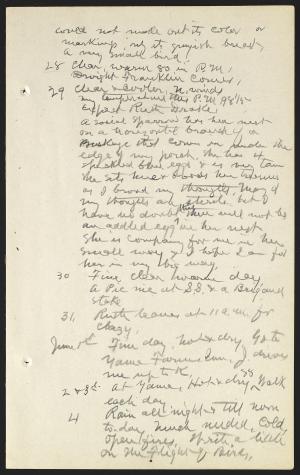 could not made out its color or
markings, only its grayish breast,
a very small bird,
28 Clear, warm 80 in P.M.
Dwight Franklin comes,
29 Clear & cooler, N. wind
my temperature this P.M. 98
Expect Ruth Drake,
A social Sparrow has her nest
on a horizontal branch of a
that comes in under the
edge of my porch. She has 4
speckled blue eggs & is very tame
She sits near & broods her
as I brood my thoughts, many of
my thoughts are sterile but I
have no doubt that there will not be
an addled egg in her nest
She is company for me in her
small way & I hope I am for
her in my big way,
30 Fine, clear warm day
A Pic nic at S.S. & a Brigand
stake
31, Ruth leaves at 11 a.m. for
June 1st Fine day, hot & dry, Go to
Yama Farms Inn, J. drives
me up to K,
2 & 3d at Yama, Hot & dry, Walk
each day
4 Rain all night & till noon
to-day, much needed, Cold,
open fires, Wrote a little
on the Flight of Birds,